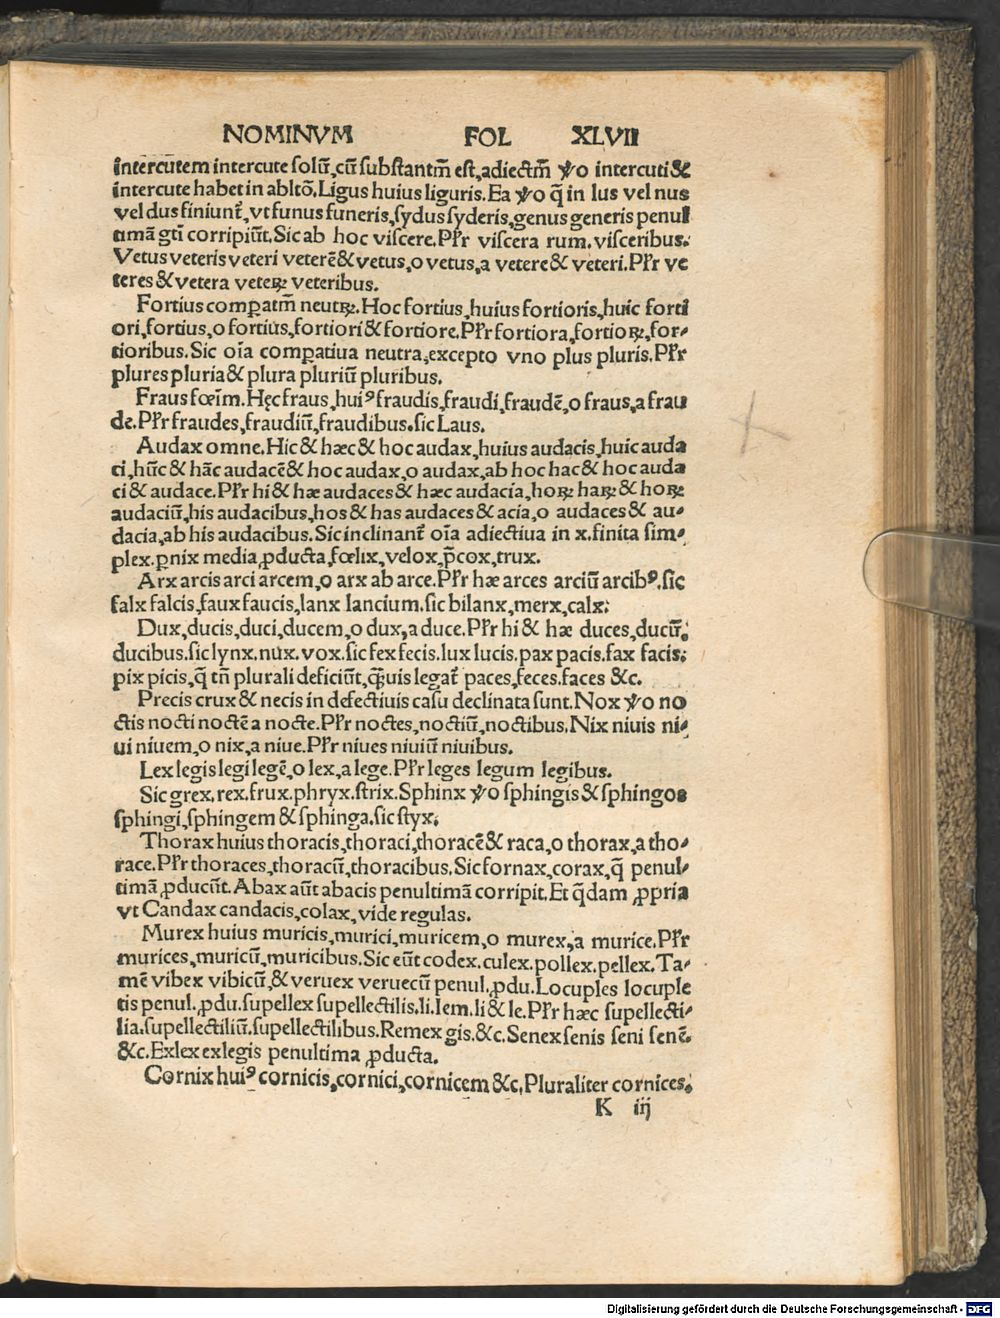 NOMINVM FOL XLVII
intercutem intercute solũ, cũ substantm̃ est, adiectm̃ ꝟo intercuti &
intercute habet in abltõ. Ligus huius liguris. Ea ꝟo q̃ in lus vel nus
vel dus finiunt᷑, vt funus funeris, sydus syderis, genus generis penul
timã gti᷑ corripiũt. Sic ab hoc viscere. Pl᷑r viscera rum. visceribus.
Vetus veteris veteri veterẽ & vetus, o vetus, a vetere & veteri. Pl᷑r ve
teres & vetera veteꝝ veteribus.
Fortius comꝑatm̃ neutꝝ. Hoc fortius, huius fortioris, huic forti
ori, fortius, o fortius, fortiori & fortiore. Pl᷑r fortiora, fortioꝝ, for-
tioribus. Sic oĩa comꝑatiua neutra, excepto vno plus pluris. Pl᷑r
plures pluria & plura pluriũ pluribus.
Fraus fœĩm. Hęc fraus, huiꝰ fraudis, fraudi, fraudẽ, o fraus, a frau
de. Pl᷑r fraudes, fraudiũ, fraudibus. sic Laus.
Audax omne. Hic & hæc & hoc audax, huius audacis, huic auda
ci, hũc & hãc audacẽ & hoc audax, o audax, ab hoc hac & hoc auda
ci & audace. Pl᷑r hi & hæ audaces & hæc audacia, hoꝝ haꝝ & hoꝝ
audaciũ, his audacibus, hos & has audaces & acia, o audaces & au-
dacia, ab his audacibus. Sic inclinant᷑ oĩa adiectiua in x. finita sim-
plex. ꝑnix media ꝓducta, fœlix, velox, p̃cox, trux.
Arx arcis arci arcem, o arx ab arce. Pl᷑r hæ arces arciũ arcibꝰ. sic
falx falcis, faux faucis, lanx lancium. sic bilanx, merx, calx.
Dux, ducis, duci, ducem, o dux, a duce. Pl᷑r hi & hæ duces, ducũ,
ducibus. sic lynx. nux. vox. sic fex fecis. lux lucis. pax pacis. fax facis.
pix picis, q̃ tñ plurali deficiũt, ꝙ̃uis legat᷑ paces, feces. faces &c.
Precis crux & necis in defectiuis casu declinata sunt. Nox ꝟo no
ctis nocti noctẽ a nocte. Pl᷑r noctes, noctiũ, noctibus. Nix niuis ni-
ui niuem, o nix, a niue. Pl᷑r niues niuiũ niuibus.
Lex legis legi legẽ, o lex, a lege. Pl᷑r leges legum legibus.
Sic grex. rex. frux. phryx. strix. Sphinx ꝟo sphingis & sphingos
sphingi, sphingem & sphinga. sic styx.
Thorax huius thoracis, thoraci, thoracẽ & raca, o thorax, a tho-
race. Pl᷑r thoraces, thoracũ, thoracibus. Sic fornax, corax, q̃ penul-
timã ꝓducũt. Abax aũt abacis penultimã corripit. Et q̃dam ꝓpria
vt Candax candacis, colax, vide regulas.
Murex huius muricis, murici, muricem, o murex, a murice. Pl᷑r
murices, muricũ, muricibus. Sic eũt codex. culex. pollex. pellex. Ta-
mẽ vibex vibicũ, & veruex veruecũ penul. ꝓdu. Locuples locuple
tis penul. ꝓdu. supellex supellectilis. li. lem. li & le. Pl᷑r hæc supellecti-
lia. supellectiliũ. supellectilibus. Remex gis. &c. Senex senis seni senẽ.
&c. Exlex exlegis penultima ꝓducta.
Cornix huiꝰ cornicis, cornici, cornicem &c. Pluraliter cornices.
K iij
Digitalisierung gefördert durch die Deutsche Forschungsgemeinschaft - DFG